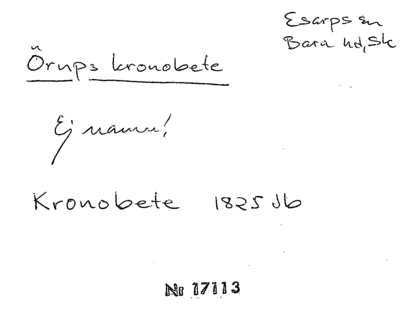 Esarps sn
Bara hd, Sk
Örups kronobete
Ej namn!
Kronobete 1825 Jb
Nr 17113